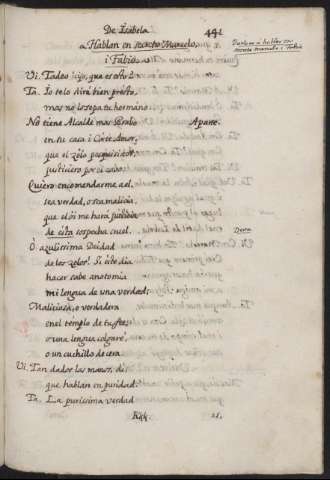 De Isabela.
491
a Hablan en secreto Marcelo,
i Fabio.
Vi. Tadeo hijo, que es esto?
Ta. Io telo diré bien presto,
mas no lo sepa tu hermano.
No tiene Alcalde mas Bravo Aparte.
en tu casa i Corte Amor,
que el zelo pesquisidor,
justiciero por el cabo.
Quiero encomendarme a el
sea verdad, o sea malicia,
que el si me hará justicia
de esta sospecha cruel.
O azulissima Deidad
de los zelos! Si este dia
hacer sabe anatomia
mi lengua de una verdad;
Maliciosa, o verdadera
en el templo de tu fee
o una lengua colgaré,
o un cuchillo de cera.
Vi. Tan dador las manos, di
que hablan en puridad.
Ta. La purissima verdad